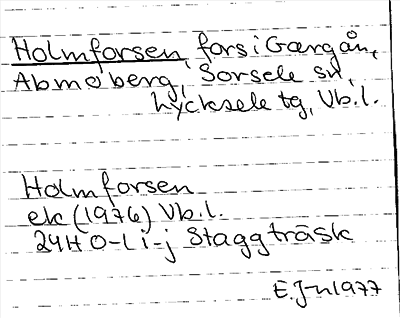 Holmforsen, fors i Gargån,
Abmoberg, Sorsele sn,
Lycksele tg, Vb.l.
Holmforsen
ek (1976) Vb.l.
24H 0-1 i-j Staggträsk
E.J-n 1977